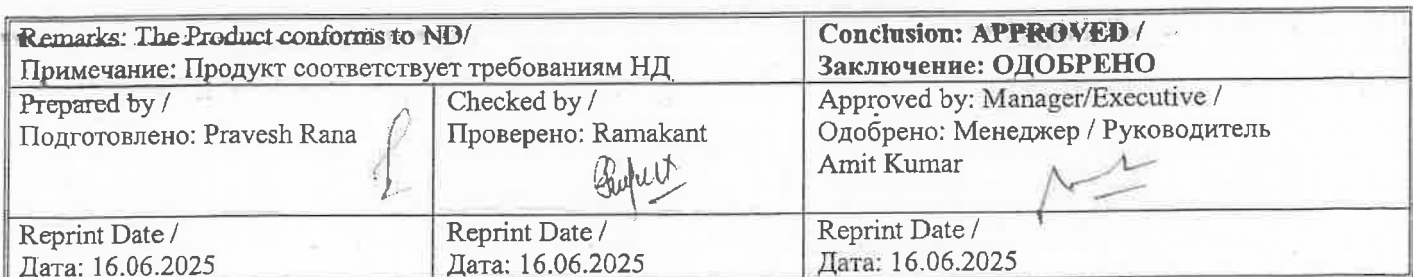 Remarks: The Product conforms to ND/
Примечание: Продукт соответствует требованиям НД
Conclusion: APPROVED /
Заключение: ОДОБРЕНО
Prepared by /
Подготовлено: Pravesh Rana
Checked by /
Проверено: Ramakant
Approved by: Manager/Executive /
Одобрено: Менеджер / Руководитель
Amit Kumar
Reprint Date /
Дата: 16.06.2025
Reprint Date /
Дата: 16.06.2025
Reprint Date /
Дата: 16.06.2025